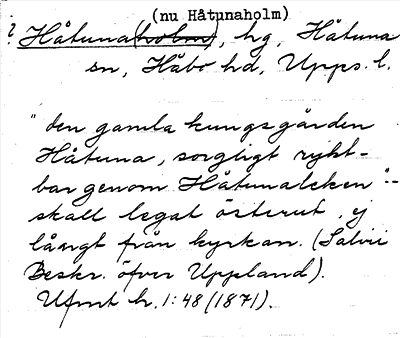 (nu Håtunaholm)
? Håtuna(holm), hg, Håtuna
sn, Håbo hd, Upps. l.
"den gamla kungsgården
Håtuna, sorgligt rykt-
bar genom Håtunaleken" –
skall legat österut, ej
långt från kyrkan. (Salvii
Beskr. öfver Uppland).
Ufmt h. 1:48 (1871).